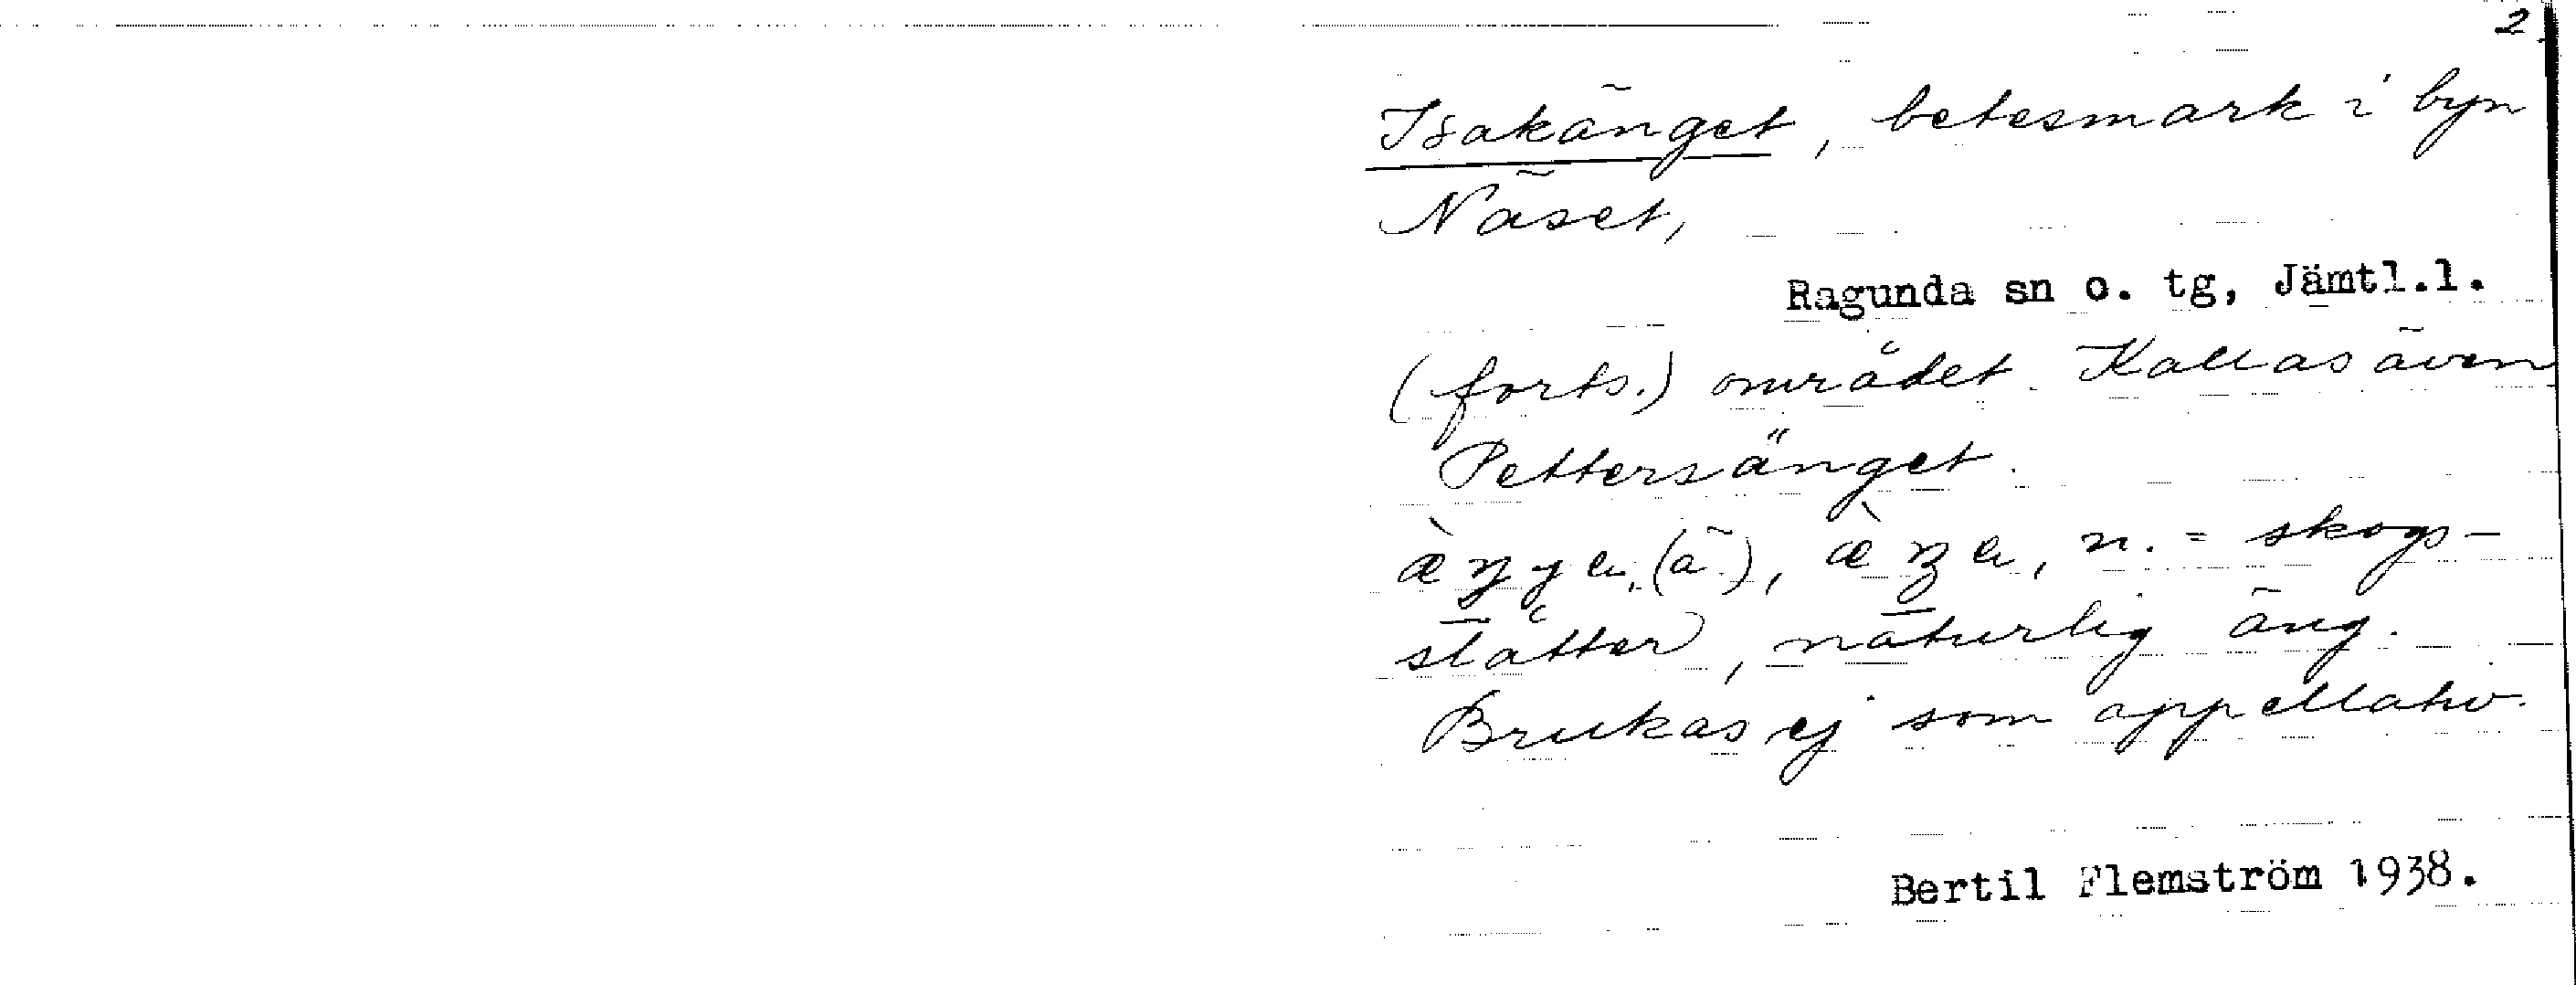 2.
Isakänget, betesmark i byn
Näset,
Ragunda sn o. tg, Jämtl.l.
(forts.) området. Kallas även
Pettersänget.
(ä), n. = skogs-
slåtter, naturlig äng.
Brukas ej som appellativ.
Bertil Flemström 1938.